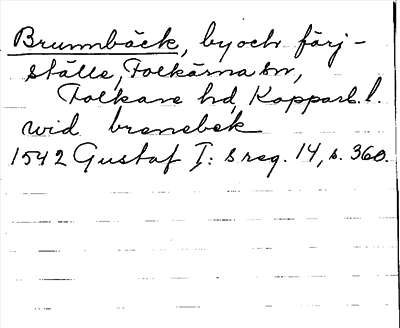 Brunnbäck, by och färj-
ställe, Folkärna sn,
Folkare hd, Kopparb. l.
wid brenebek
1542 Gustaf I: s reg. 14, s. 360.